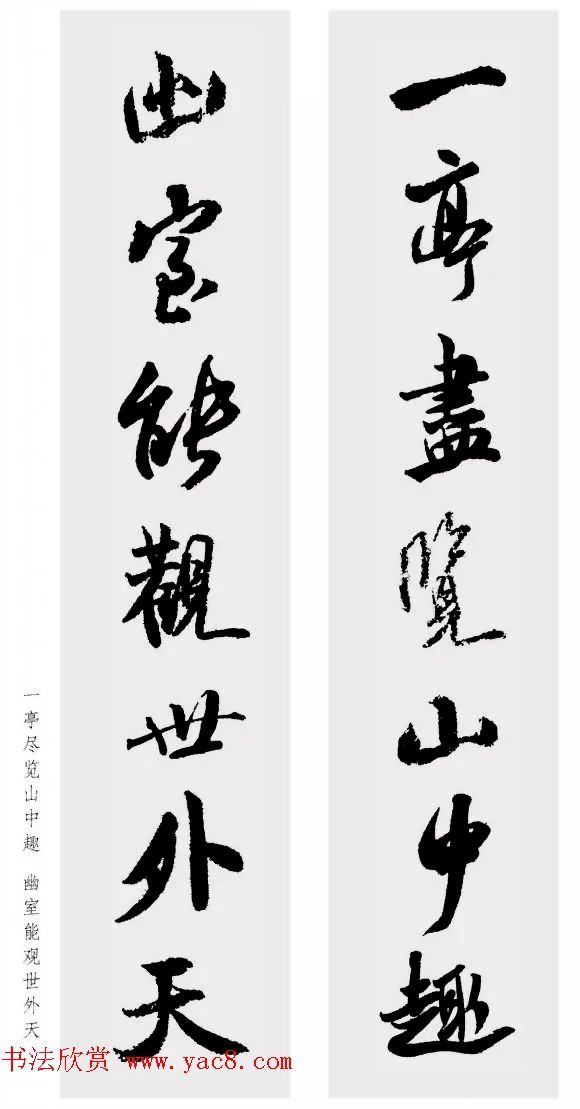 一亭盡覽山中趣
幽室能觀世外天
一亭尽览山中趣 幽室能观世外天
书法欣赏 www.yac8.com